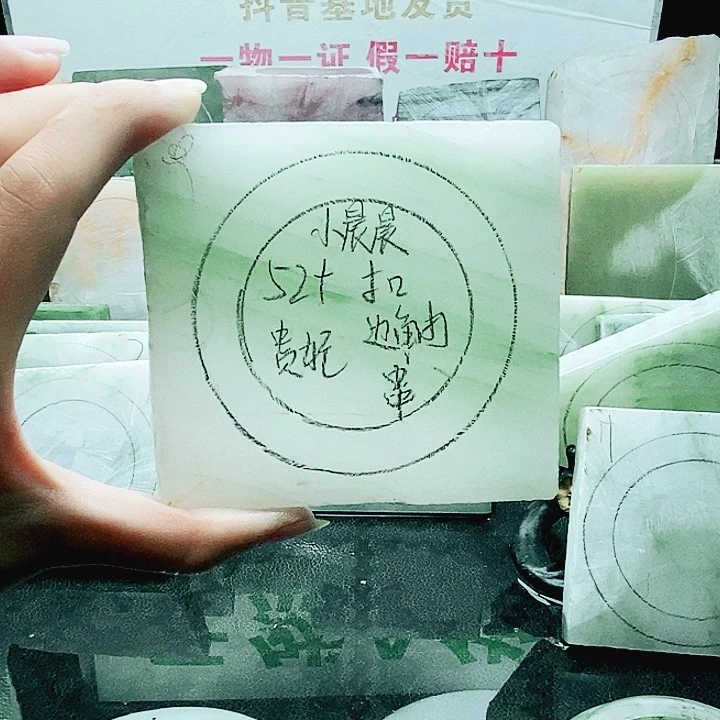 抖音基地发货
一物一证 假一赔十
小晨晨
52+ 扣
贵妃 边角
串